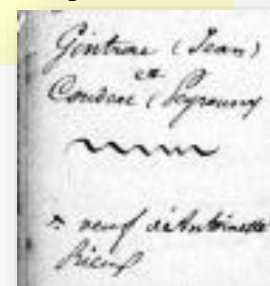 Gintrac (Jean)
et
Coudert (Peyronny
veuf de Antoinette
Rieux